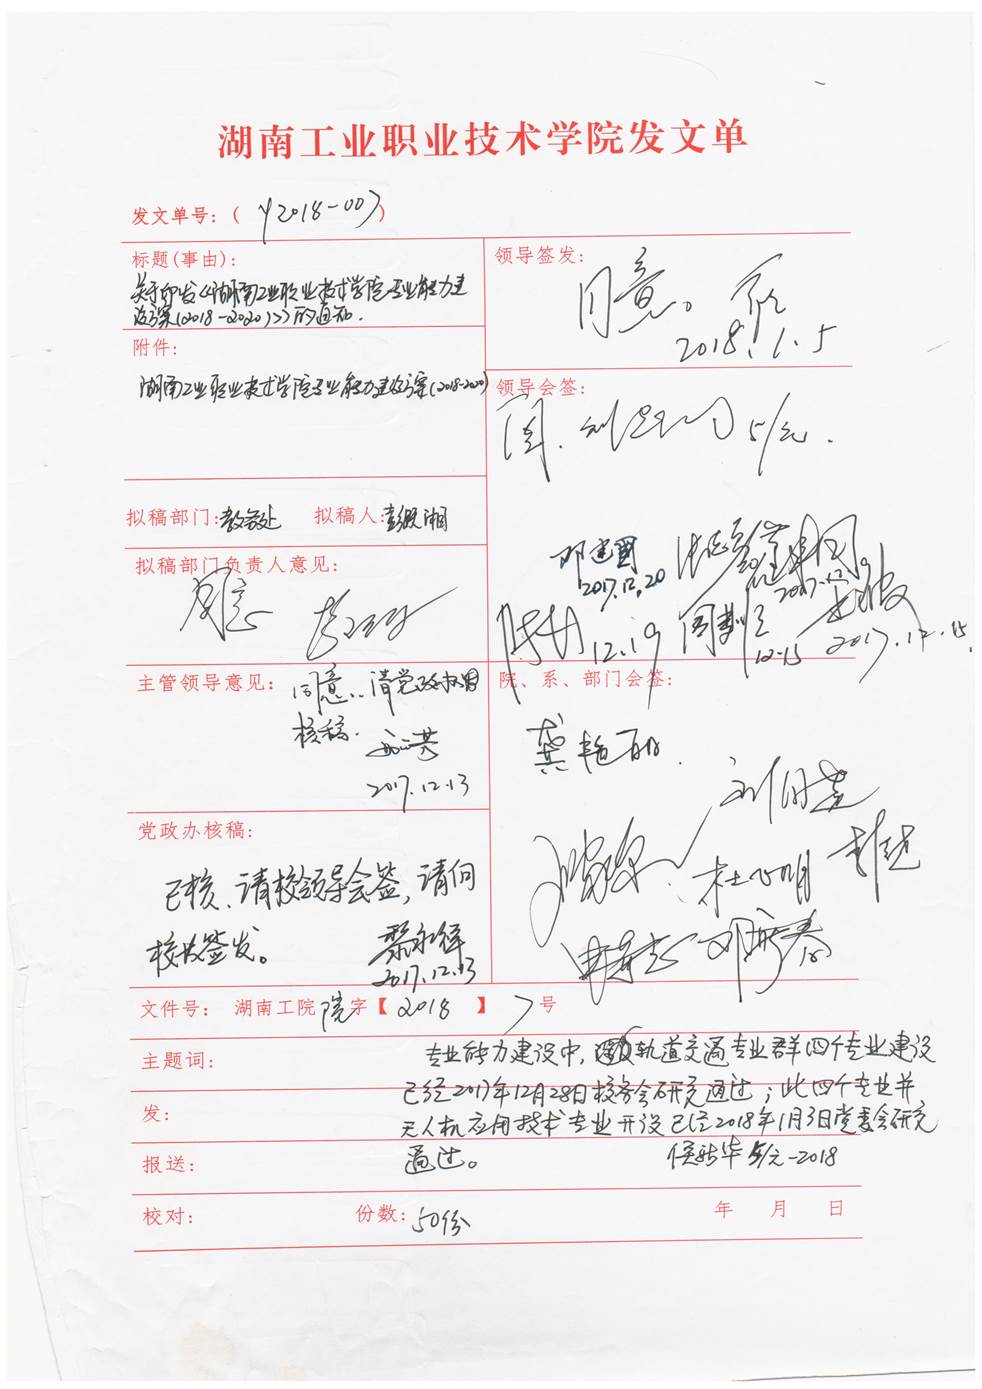 湖南工业职业技术学院发文单
发文单号：( y2018-007)
标题(事由)：
关于印发《湖南工业职业技术学院专业能力建
设方案(2018-2020)》的通知.
附件：
湖南工业职业技术学院专业能力建设方案(2018-2020)
拟稿部门：教务处 拟稿人：
拟稿部门负责人意见：
同意
主管领导意见：
同意，请党政办
核稿.
2017.12.13
党政办核稿：
已核、请校领导会签，请何
校长签发。
2017.12.13
领导签发：
同意。
2018.1.5
领导会签：
同意. 5/元.
邓建国
2017.12.20
2017.12.19
12.19
12.15
2017.12.15.
院、系、部门会签：
龚艳丽.
文件号： 湖南工院院字【2018】7号
主题词：
专业能力建设中，轨道交通专业群四个专业建设
已经2017年12月28日校务会研究通过；此四个专业并
无人机应用技术专业开设已经2018年1月3日党委会研究
通过。 侯新华 5/元-2018
发：
报送：
校对： 份数：50份 年 月 日